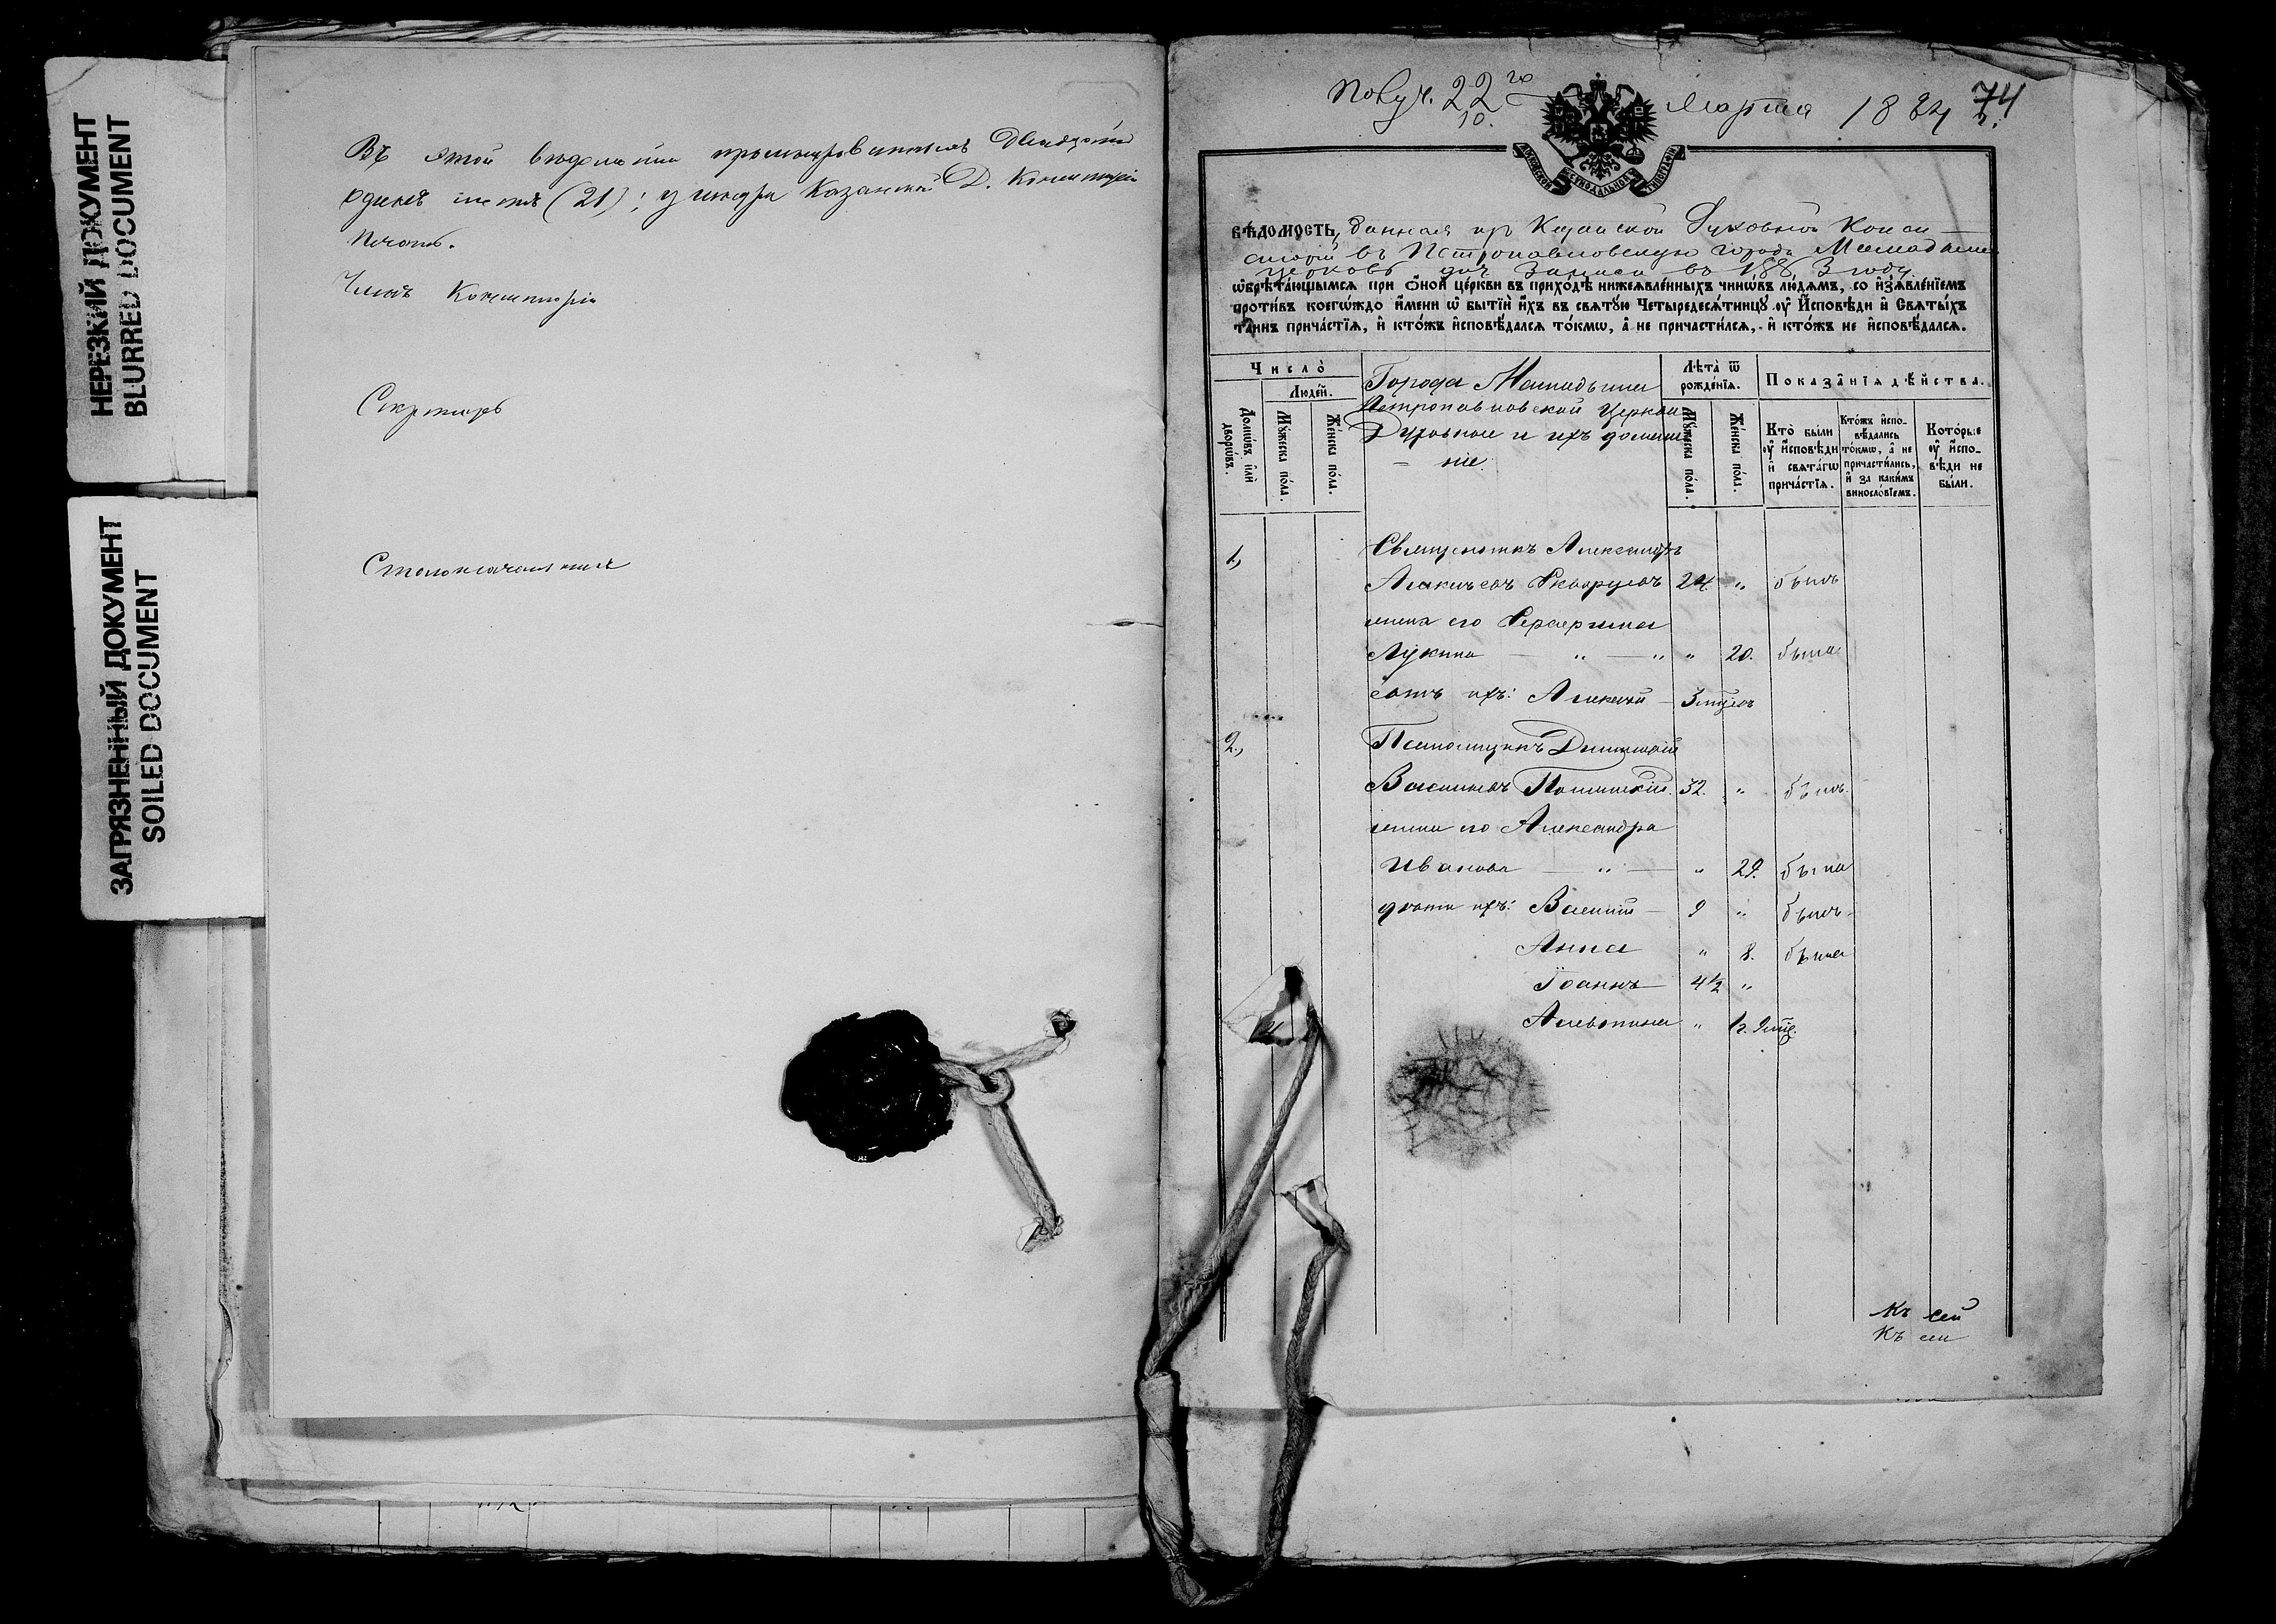 НЕРЕЗКИЙ ДОКУМЕНТ
BLURRED DOCUMENT
ЗАГРЯЗНЕННЫЙ ДОКУМЕНТ
SOILED DOCUMENT
Въ этой ведомости двадцать
одинъ листъ (21); у шнура Казанской Д. Консисторіи
печать.
Членъ Консисторіи
Секретарь
Столоначальникъ
Получ. 22го Марта 1884 г.
10.
74
МОСКОВСКОЙ СѴНОДАЛЬНОЙ ТИПОГРАФІИ
ВѢДОМОСТЬ, данная изъ Казанской Духовной Конси
сторіи въ Петропавловскую города Мамадыша
церковь для записи въ 1883 году
ѡбрѣта́ющымся при ѻ҆но́й це́ркви въ прихо́дѣ нижеѧвле́нныхъ чинѡ́въ лю́демъ, со и҆зъѧвле́нїемъ
проти́въ коегѡ́ждо и҆́мени ѡ҆ бытїѝ и҆́хъ въ свѧту́ю Четыредесѧ́тницꙋ ᲂу҆ И҆сповѣ́ди и҆ Свѧты́хъ
та́инъ прича́стїѧ, и҆ кто́жъ и҆сповѣ́далсѧ то́кмѡ, а҆ не причасти́лсѧ, и҆ кто́жъ не и҆сповѣ́далсѧ.
Число̀
Люде́й.
Домѡ́въ и҆лѝ дворѡ́въ.
Мꙋ́жеска по́ла.
Же́нска по́ла.
Города Мамадыша
Петропавловской Церкви
Духовные и ихъ домаш
ніе
Лѣ́та ѿ рожде́нїѧ.
Мꙋ́жеска по́ла.
Же́нска по́ла.
Показа̑нїѧ дѣ́йства.
Кто̀ бы́ли ᲂу҆ и҆сповѣ́ди и҆ свѧта́гѡ прича́стїѧ.
Кто́жъ и҆сповѣ́дались то́кмѡ, а҆ не причасти́лись, и҆ за каки́мъ винослові́емъ.
Кото́рые ᲂу҆ и҆сповѣ́ди не бы́ли.
1, Священникъ Александръ
Алексѣевъ Скворцовъ 24. " былъ
жена его
Лукина — " — " " 20. была
сынъ ихъ: Алексѣй — 3 мѣсяц
2., Псаломщикъ Димитрій
Васильевъ 32. " былъ.
жена его Александра
Иванова — " — " 29. была
дѣти ихъ: Василій — 9 " былъ
Анна " 8. была
Іоаннъ — 4½ "
Алевтина " 1 г. 9 мѣс.
Къ сей
Къ сей